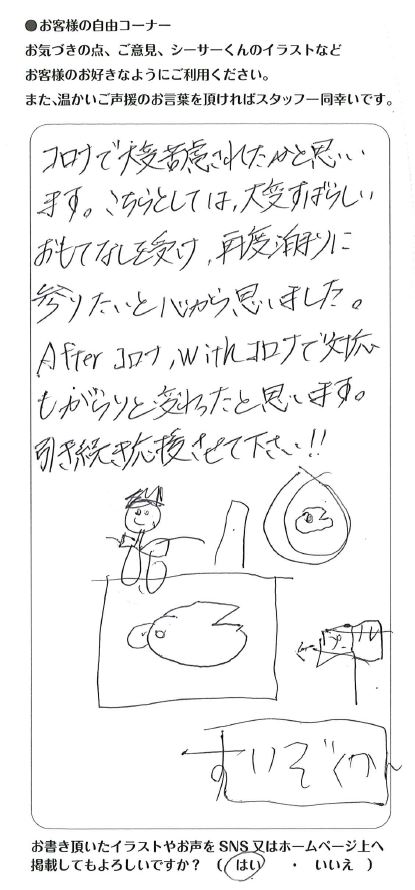 ●お客様の自由コーナー
お気づきの点、ご意見、シーサーくんのイラストなど
お客様のお好きなようにご利用ください。
また、温かいご声援のお言葉を頂ければスタッフ一同幸いです。
コロナで大変苦慮されたかと思い
ます。こちらとしては、大変すばらしい
おもてなしを受け、再度泊まりに
参りたいと心から思いました。
Afterコロナ,withコロナで対応
もがらりと変わったと思います。
引き続き応援させて下さい!!
すいぞくかん
お書き頂いたイラストやお声をSNS又はホームページ上へ
掲載してもよろしいですか? ( はい ・ いいえ )